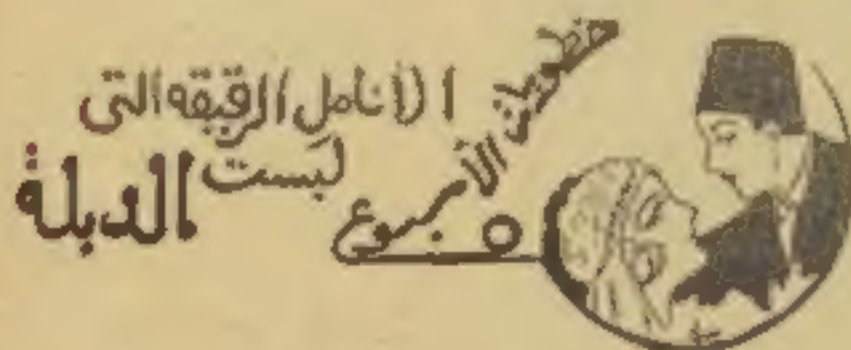 خطوبات الأسبوع
الأنامل الرقيقة التى
لبست
الدبلة